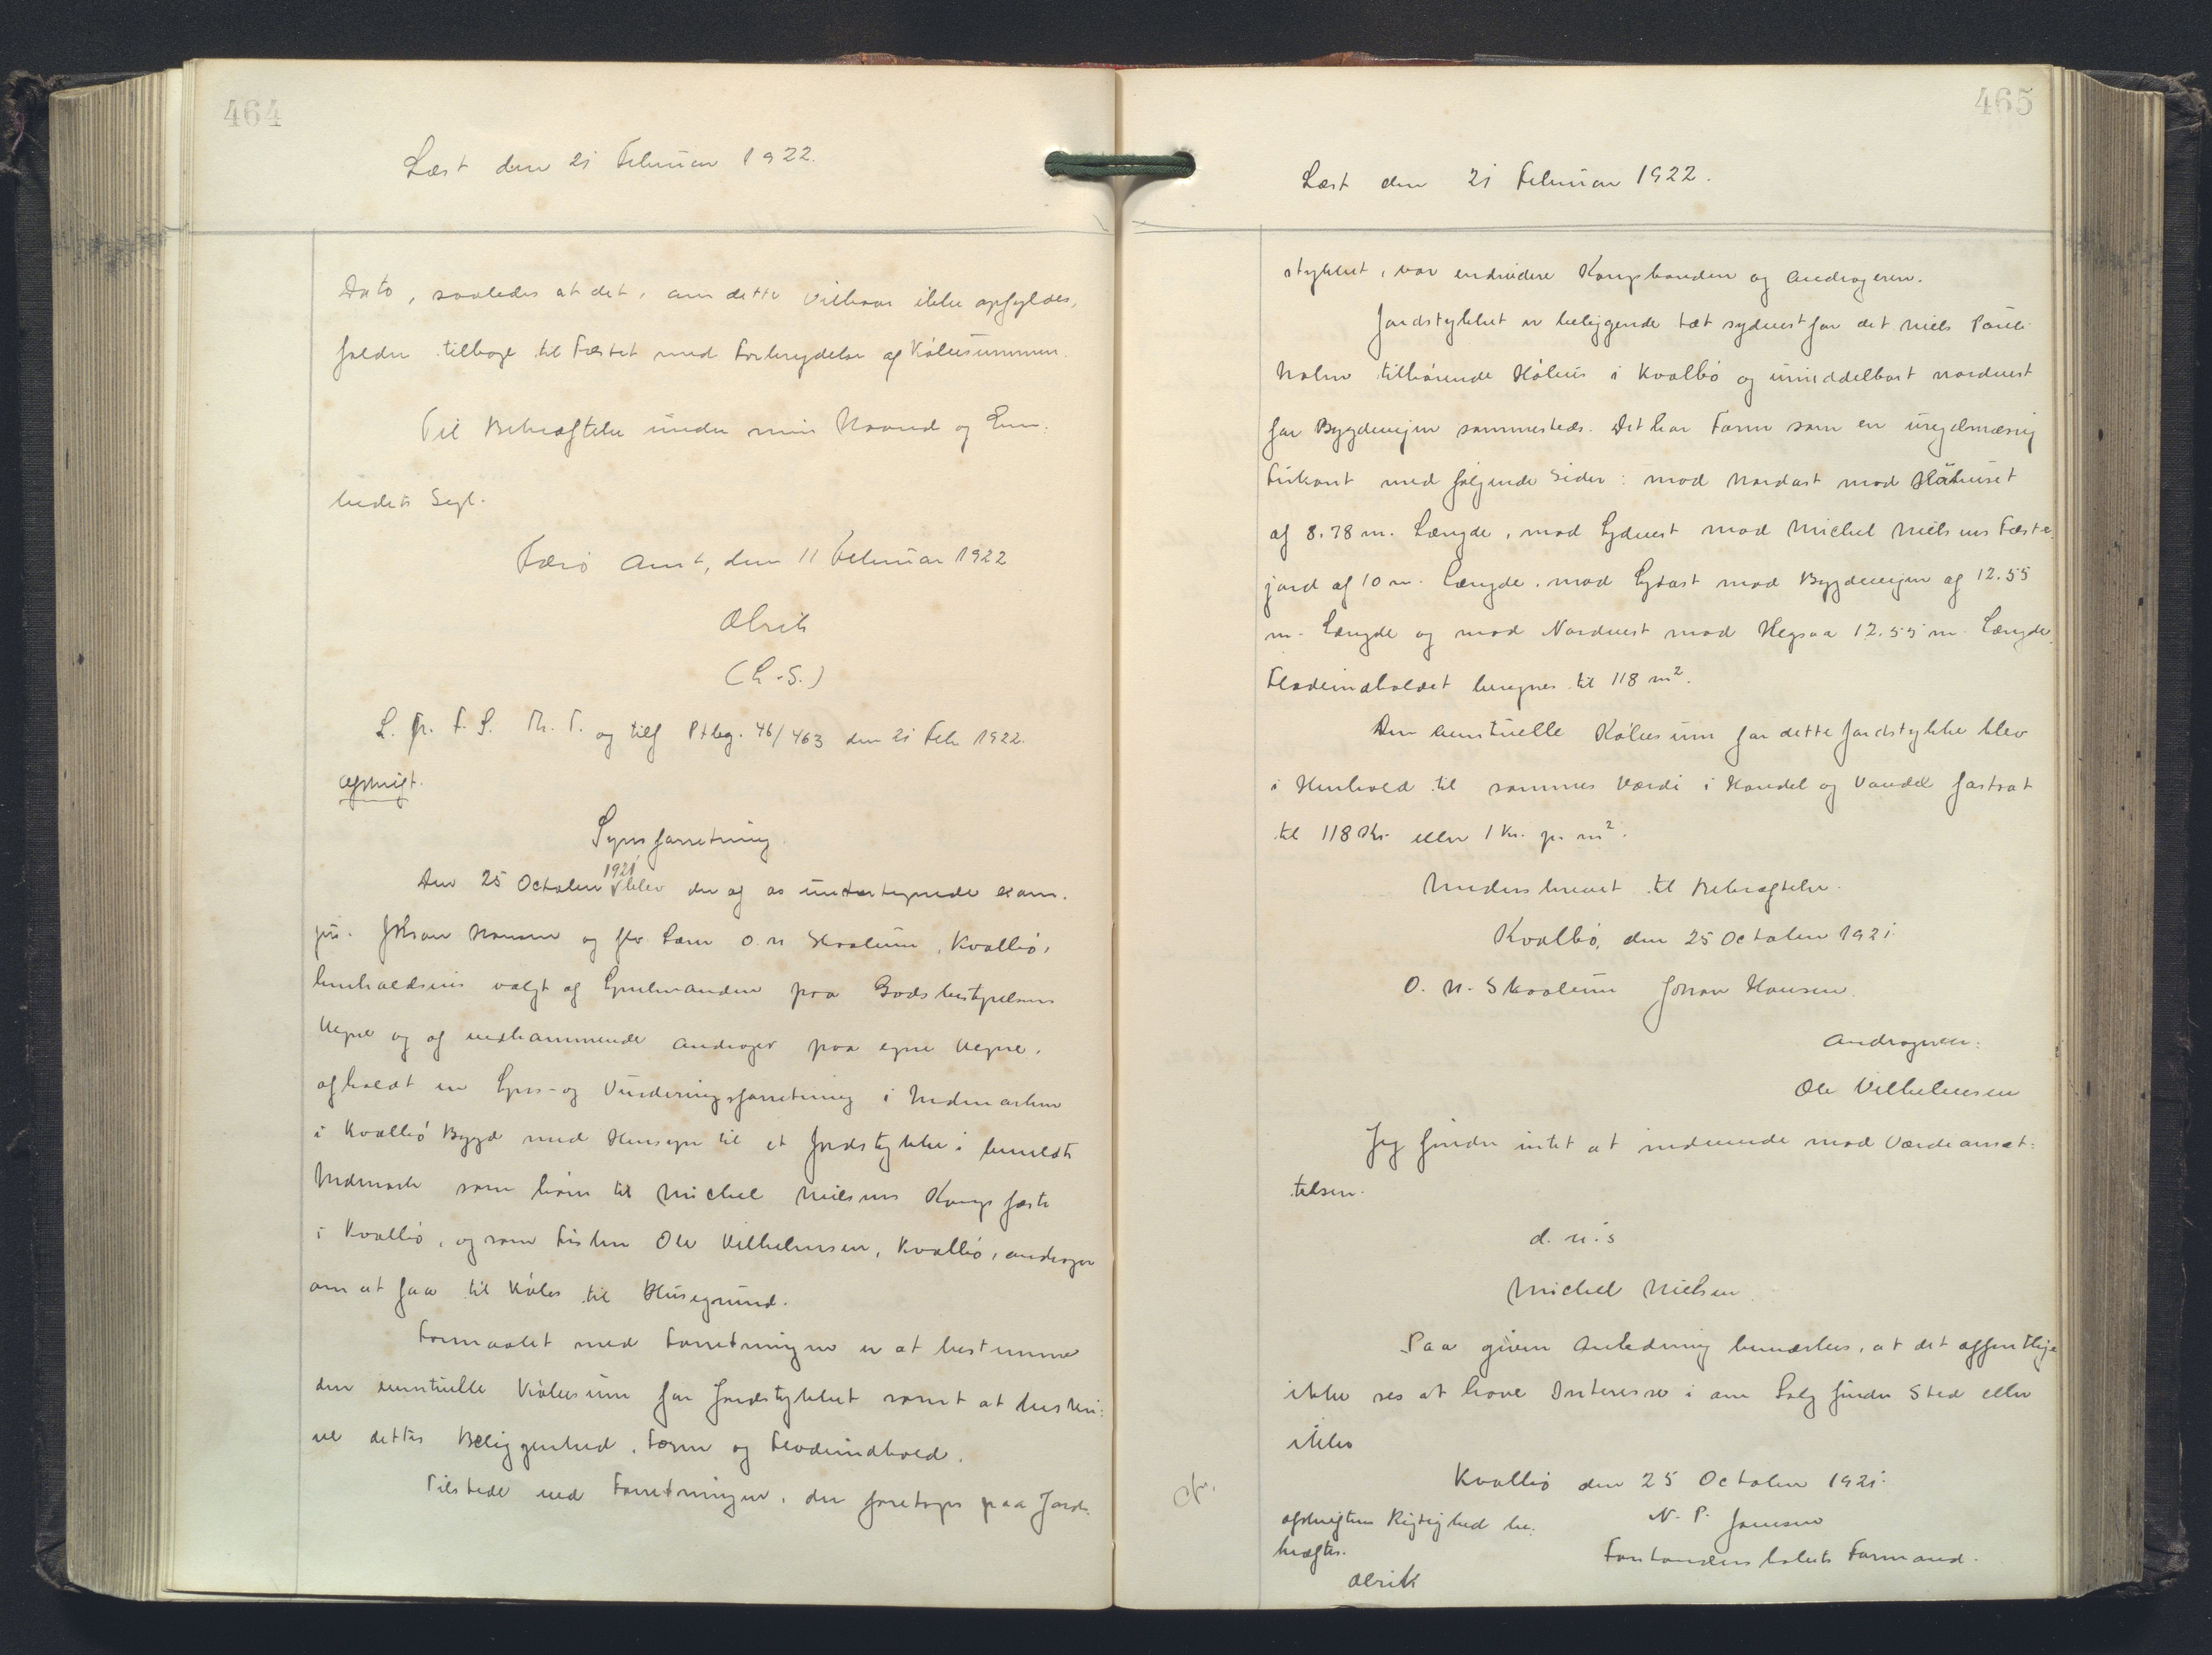 464
Læst den 21 Februar 1922.
Dato, saaledes at det, om dette Vilkaar ikke opfyldes,
falder tilbage til Fæstet med Forbrydelse af Købesummen.
Til Bekræftelse under min Haand og Em-
bedets Segl.
Færø Amt, den 11 Februar 1922
Olrik
(L.S.)
L. p. F. S. Th. T. og tilf Ptbg. 46/463 den 21 Feb 1922.
Afskrift.
Synsforretning.
1921
Den 25 October blev der af os undertegnede exam.
jur. Johan Hansen og fhv. Lærer O. N. Skaalum, Kvalbø,
henholdsvis valgt af Sysselmanden paa Godsbestyrelsens
Vegne og af vedkommende Andrager paa egne Vegne,
afholdt en Syns- og Vurderingsforretning i Indmarken
i Kvalbø Bygd med Hensyn til et Jordstykke i bemeldte
Indmark som hører til Michel Nielsens Kongsfæste
i Kvalbø, og som Fisker Ole Vilhelmsen, Kvalbø, andrager
om at faa til Købs til Husegrund.
Formaalet med Forretningen er at bestemme
den eventuelle Købesum for Jordstykket samt at beskri-
ve dettes Beliggenhed, Form og Fladeindhold.
Tilstede ved Forretningen, der foretoges paa Jord-
465
Læst den 21 Februar 1922.
stykket, var endvidere Kongsbonden og Andrageren.
Jordstykket er beliggende tæt sydvest for det Niels Pauli
Holm tilhørende Høhus i Kvalbø og umiddelbart nordvest
for Bygdevejen sammesteds. Det har Form som en uregelmæssig
Firkant med følgende Sider: mod Nordøst mod Høhuset
af 8.78 m. Længde, mod Sydvest mod Michel Nielsens Fæste-
jord af 10 m. Længde, mod Sydøst mod Bygdevejen af 12.55
m. Længde og mod Nordvest mod Hegsaa 12.55 m. Længde.
Fladeindholdet beregnes til 118 m².
Den eventuelle Købesum for dette Jordstykke blev
i Henhold til sammes Værdi i Handel og Vandel fastsat
til 118 Kr. eller 1 Kr. pr. m².
Underskrevet til Bekræftelse.
Kvalbø, den 25 October 1921.
O. N. Skaalum Johan Hansen.
Andrageren:
Ole Vilhelmsen
Jeg finder intet at indvende mod Værdiansæt-
telsen.
d. u. s
Michel Nielsen.
Paa given Anledning bemærkes, at det offentlige
ikke ses at have Interesse i om Salg finder Sted eller
ikke
Kvalbø den 25 October 1921.
Afskriftens Rigtighed be-
kræftes.
Olrik
N. P. Jensen
Forstanderskabets Formand.